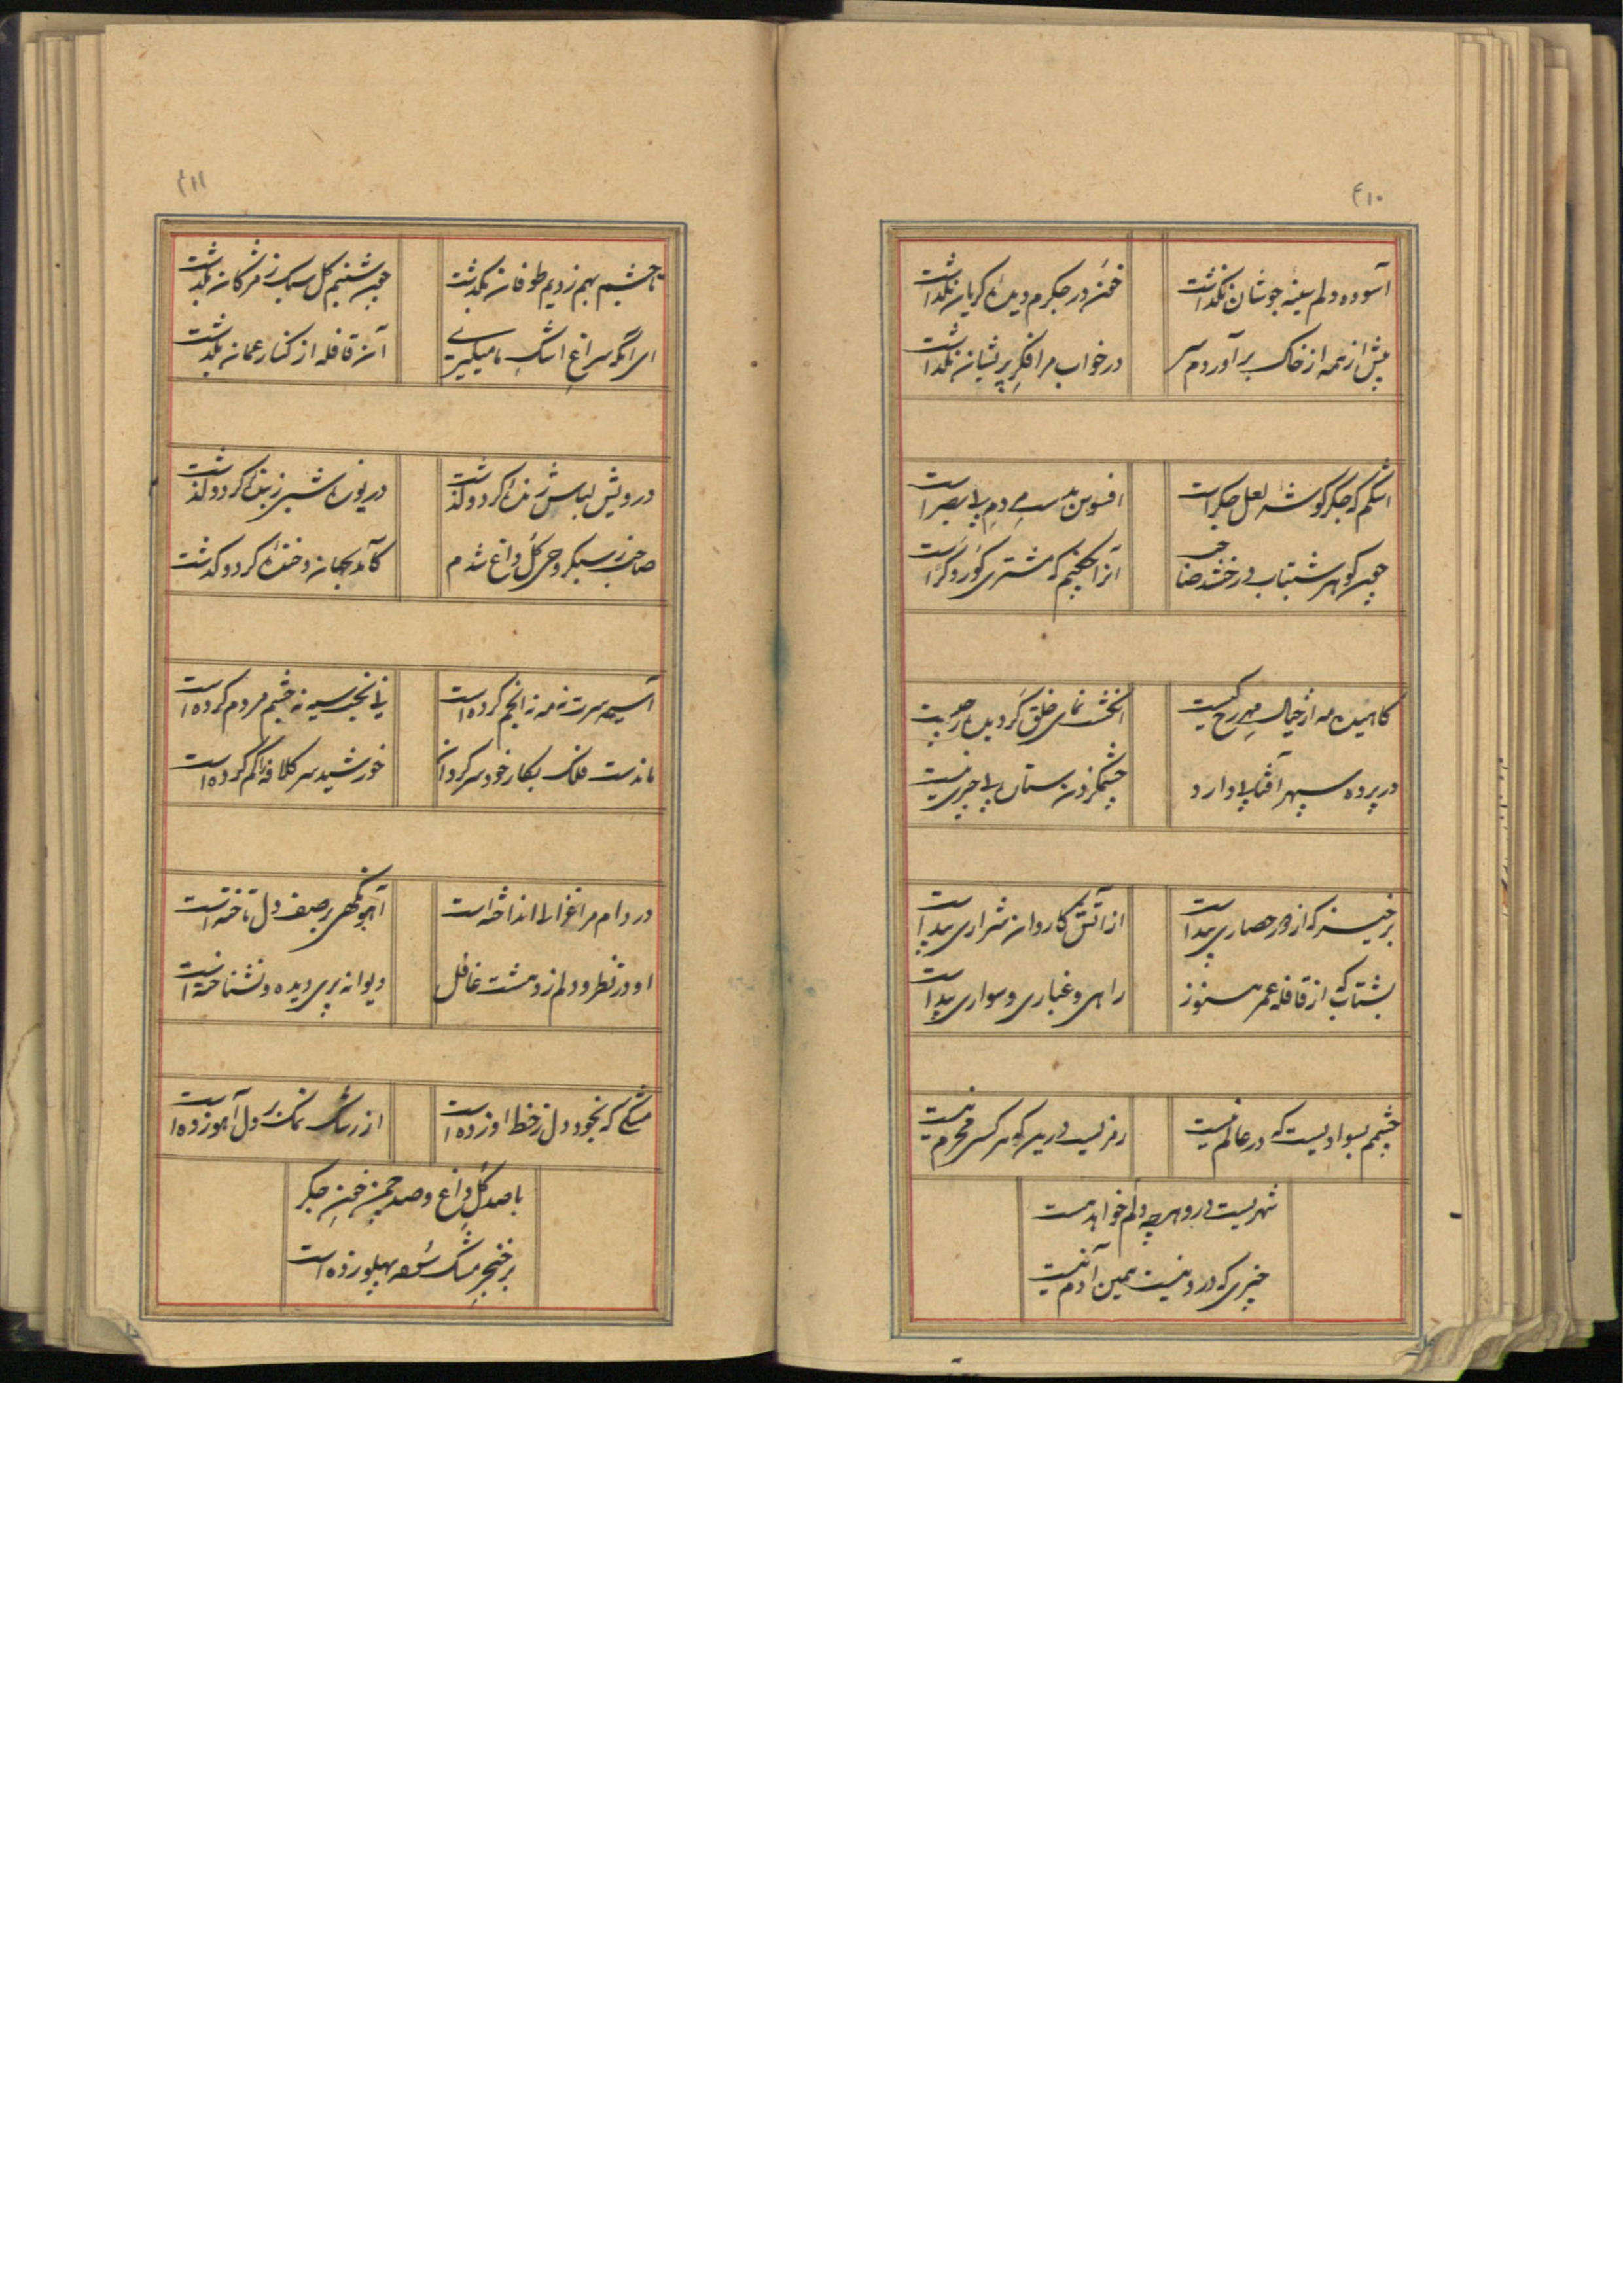 ۴۱۰
آسوده دلم سینه جوشان نگذاشت
خون در جگرم دیده گریان نگذاشت
پیش از همه از خاک برآوردم سر
در خواب مرا فکر پریشان نگذاشت
اشکم که جگر گوشه لعل جگر است
افسوس بدست مردم بی بصر است
چون گوهر شبتاب درخشد صاحب
آنرا چکنم که مشتری کور و کر است
کاهیدن مه از خیال مه رخ کیست
انگشت نمای خلق گردیدن چیست
در پرده سپهر آفتابی دارد
چشمک زدن ستاره بی چیزی نیست
برخیز که از دور حصاری پیداست
از آتش کاروان شراری پیداست
بشتاب که از قافله عمر هنوز
راهی و غباری و سواری پیداست
چشمم بسوادیست که در عالم نیست
رمزیست درین که هر کسی محرم نیست
شهریست درو هر چه دلم خواهد هست
چیزی که درو نیست همین آدم نیست
۴۱۱
تا چشم بهم زدیم طوفان بگذشت
چون شبنم گل سبک ز مژگان بگذشت
ای آنکه سراغ اشک ما میگیری
آن قافله از کنار عمان بگذشت
درویش لباس ژنده کرد و گذشت
در بوزه شیر زنده کرد و گذشت
صاحب ز سبکروحی گل داغ شدم
کآمد بجهان و خنده کرد و گذشت
آسیمه سرت نه مه نه انجم کرده است
نی بخت سیه نه چشم مردم کرده است
ماندست فلک بکار خود سرگردان
خورشید سر کلافه را گم کرده است
در دام مرا غزالی انداخته است
آهو نگهی بر صف دل تاخته است
او در نظر و دلم ز دهشت غافل
دیوانه پری دیده و نشناخته است
مشکی که بخود دل ز خط او زده است
از رشک نمک بر دل آهو زده است
با صد گل داغ و صد چمن خون جگر
بر خنجر مشک سوده پهلو زده است